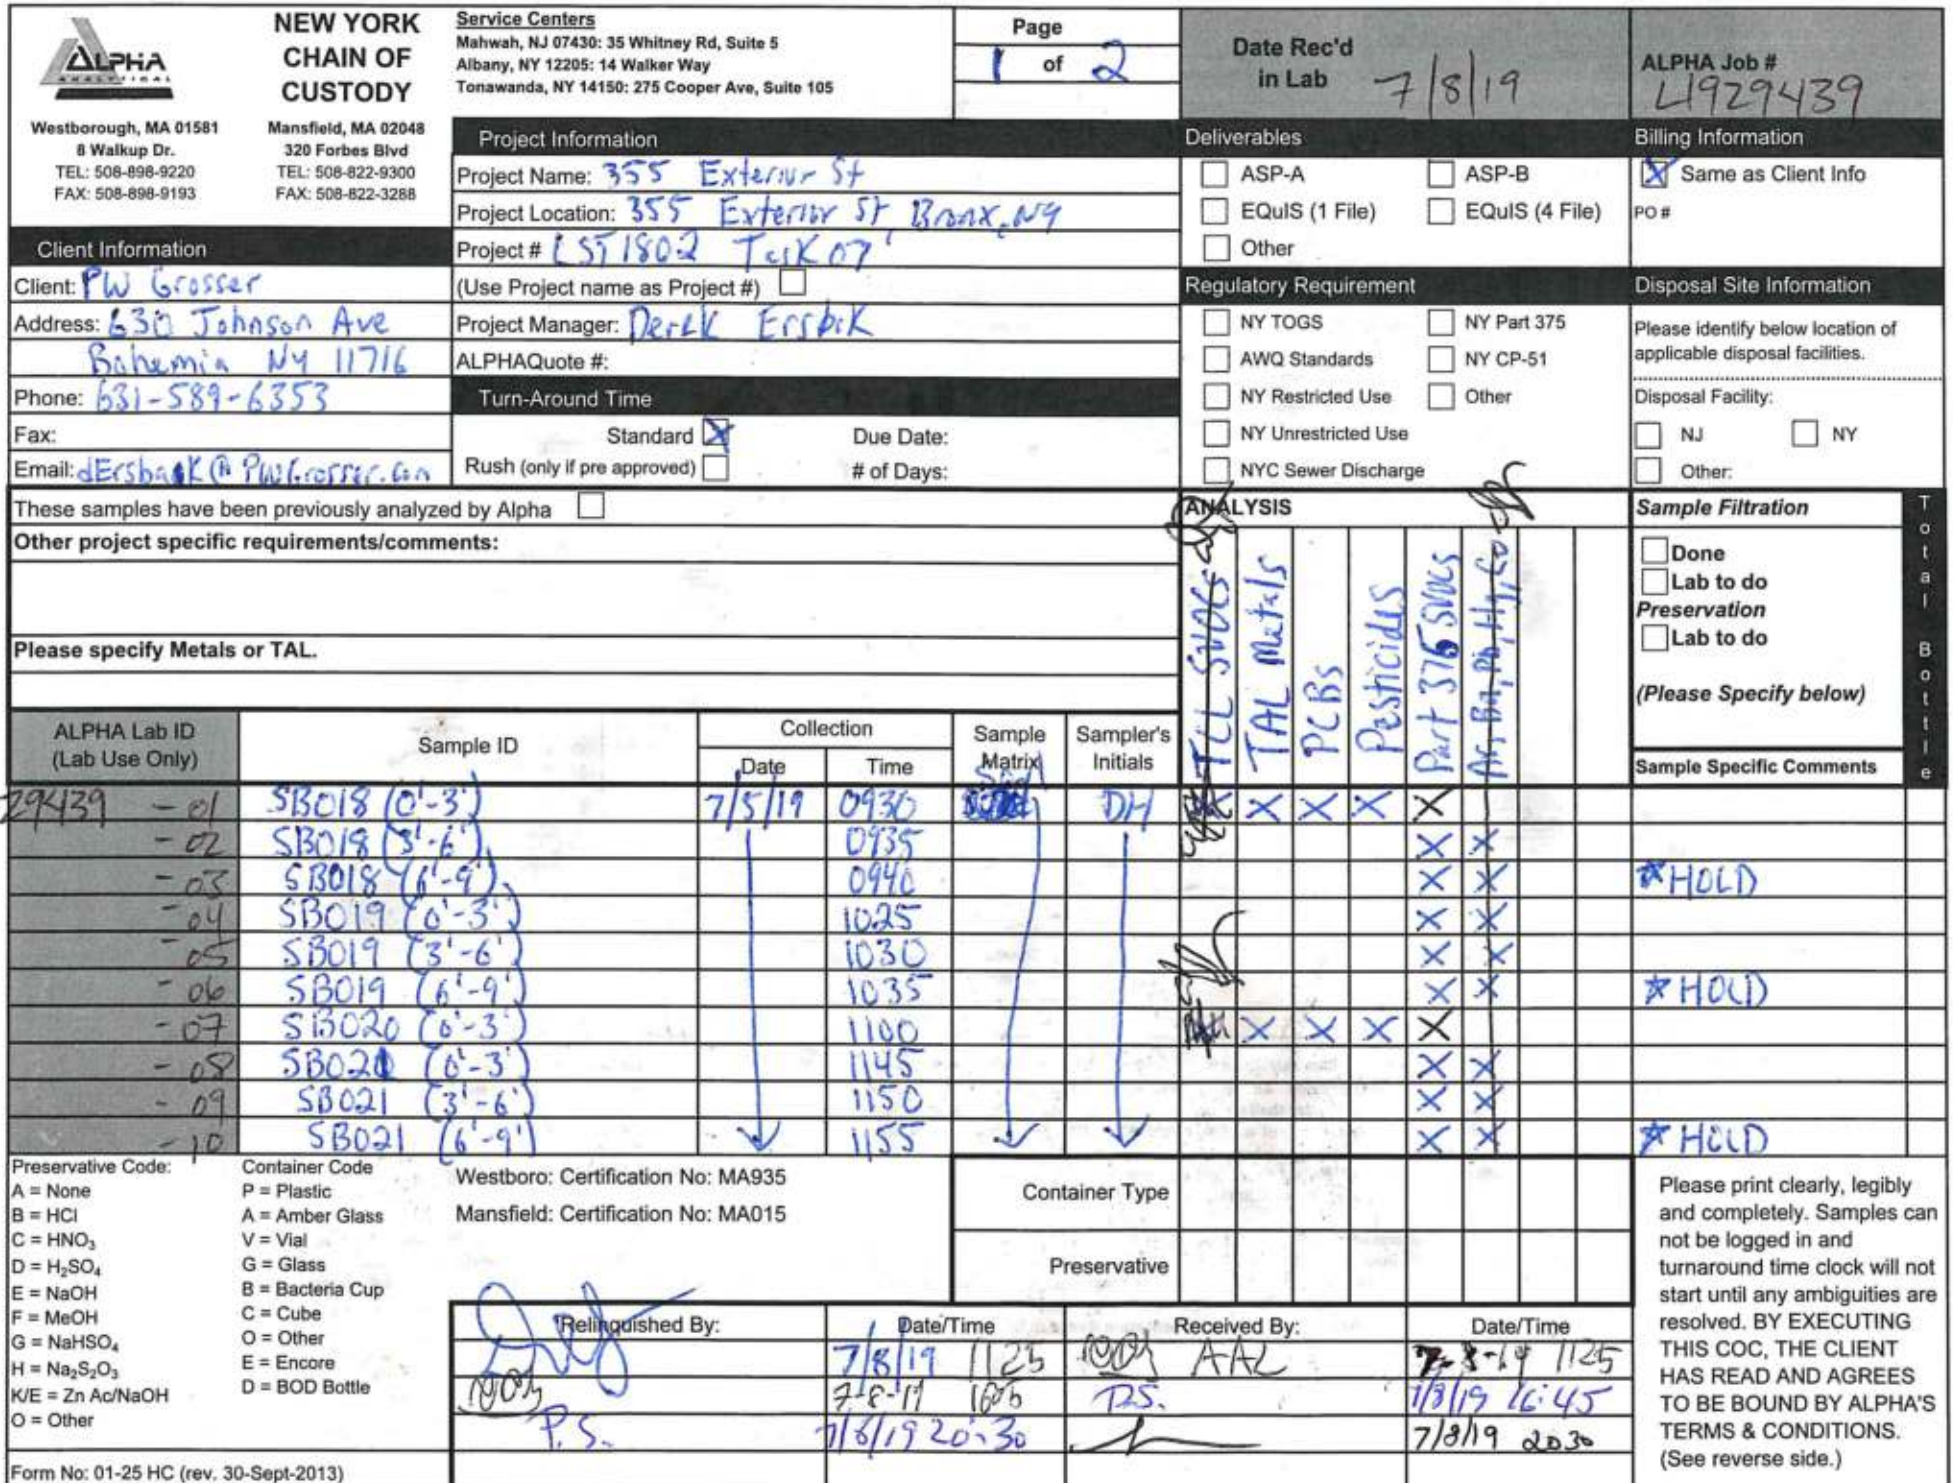 ALPHA
ANALYTICAL
Westborough, MA 01581
8 Walkup Dr.
TEL: 508-898-9220
FAX: 508-898-9193
NEW YORK
CHAIN OF
CUSTODY
Mansfield, MA 02048
320 Forbes Blvd
TEL: 508-822-9300
FAX: 508-822-3288
Service Centers
Mahwah, NJ 07430: 35 Whitney Rd, Suite 5
Albany, NY 12205: 14 Walker Way
Tonawanda, NY 14150: 275 Cooper Ave, Suite 105
Page
1 of 2
Date Rec'd
in Lab 7/8/19
ALPHA Job #
L1929439
Client Information
Client: PW Grosser
Address: 630 Johnson Ave
Bohemia NY 11716
Phone: 631-589-6353
Fax:
Email: dErsbak@PWGrosser.com
Project Information
Project Name: 355 Exterior St
Project Location: 355 Exterior St, Bronx, NY
Project # LST1802 Task 07
(Use Project name as Project #)
Project Manager: Derek Ersbak
ALPHAQuote #:
Turn-Around Time
Standard X Due Date:
Rush (only if pre approved) # of Days:
Deliverables
ASP-A ASP-B
EQuIS (1 File) EQuIS (4 File)
Other
Regulatory Requirement
NY TOGS NY Part 375
AWQ Standards NY CP-51
NY Restricted Use Other
NY Unrestricted Use
NYC Sewer Discharge
Billing Information
X Same as Client Info
PO #
Disposal Site Information
Please identify below location of
applicable disposal facilities.
Disposal Facility:
NJ NY
Other:
These samples have been previously analyzed by Alpha
Other project specific requirements/comments:
Please specify Metals or TAL.
ANALYSIS
TCL SVOCs
TAL Metals
PCBs
Pesticides
Part 375 SVOCs
Sample Filtration
Done
Lab to do
Preservation
Lab to do
(Please Specify below)
Total Bottle
ALPHA Lab ID
(Lab Use Only)
Sample ID
Collection
Date Time
Sample
Matrix
Soil
Sampler's
Initials
Sample Specific Comments
29439 - 01 SB018 (0'-3') 7/5/19 0930 DH X X X X
- 02 SB018 (3'-6') 0935 X X
- 03 SB018 (6'-9') 0940 X X *HOLD
- 04 SB019 (0'-3') 1025 X X
- 05 SB019 (3'-6') 1030 X X
- 06 SB019 (6'-9') 1035 X X *HOLD
- 07 SB020 (0'-3') 1100 X X X X
- 08 SB021 (0'-3') 1145 X X
- 09 SB021 (3'-6') 1150 X X
- 10 SB021 (6'-9') 1155 X X *HOLD
Preservative Code:
A = None
B = HCl
C = HNO₃
D = H₂SO₄
E = NaOH
F = MeOH
G = NaHSO₄
H = Na₂S₂O₃
K/E = Zn Ac/NaOH
O = Other
Container Code
P = Plastic
A = Amber Glass
V = Vial
G = Glass
B = Bacteria Cup
C = Cube
O = Other
E = Encore
D = BOD Bottle
Westboro: Certification No: MA935
Mansfield: Certification No: MA015
Container Type
Preservative
Relinquished By: Date/Time Received By: Date/Time
7/8/19 1125 AAL 7-8-19 1125
P.S. 7/8/19 16:45
P.S. 20:30 7/8/19 2030
Please print clearly, legibly
and completely. Samples can
not be logged in and
turnaround time clock will not
start until any ambiguities are
resolved. BY EXECUTING
THIS COC, THE CLIENT
HAS READ AND AGREES
TO BE BOUND BY ALPHA'S
TERMS & CONDITIONS.
(See reverse side.)
Form No: 01-25 HC (rev. 30-Sept-2013)